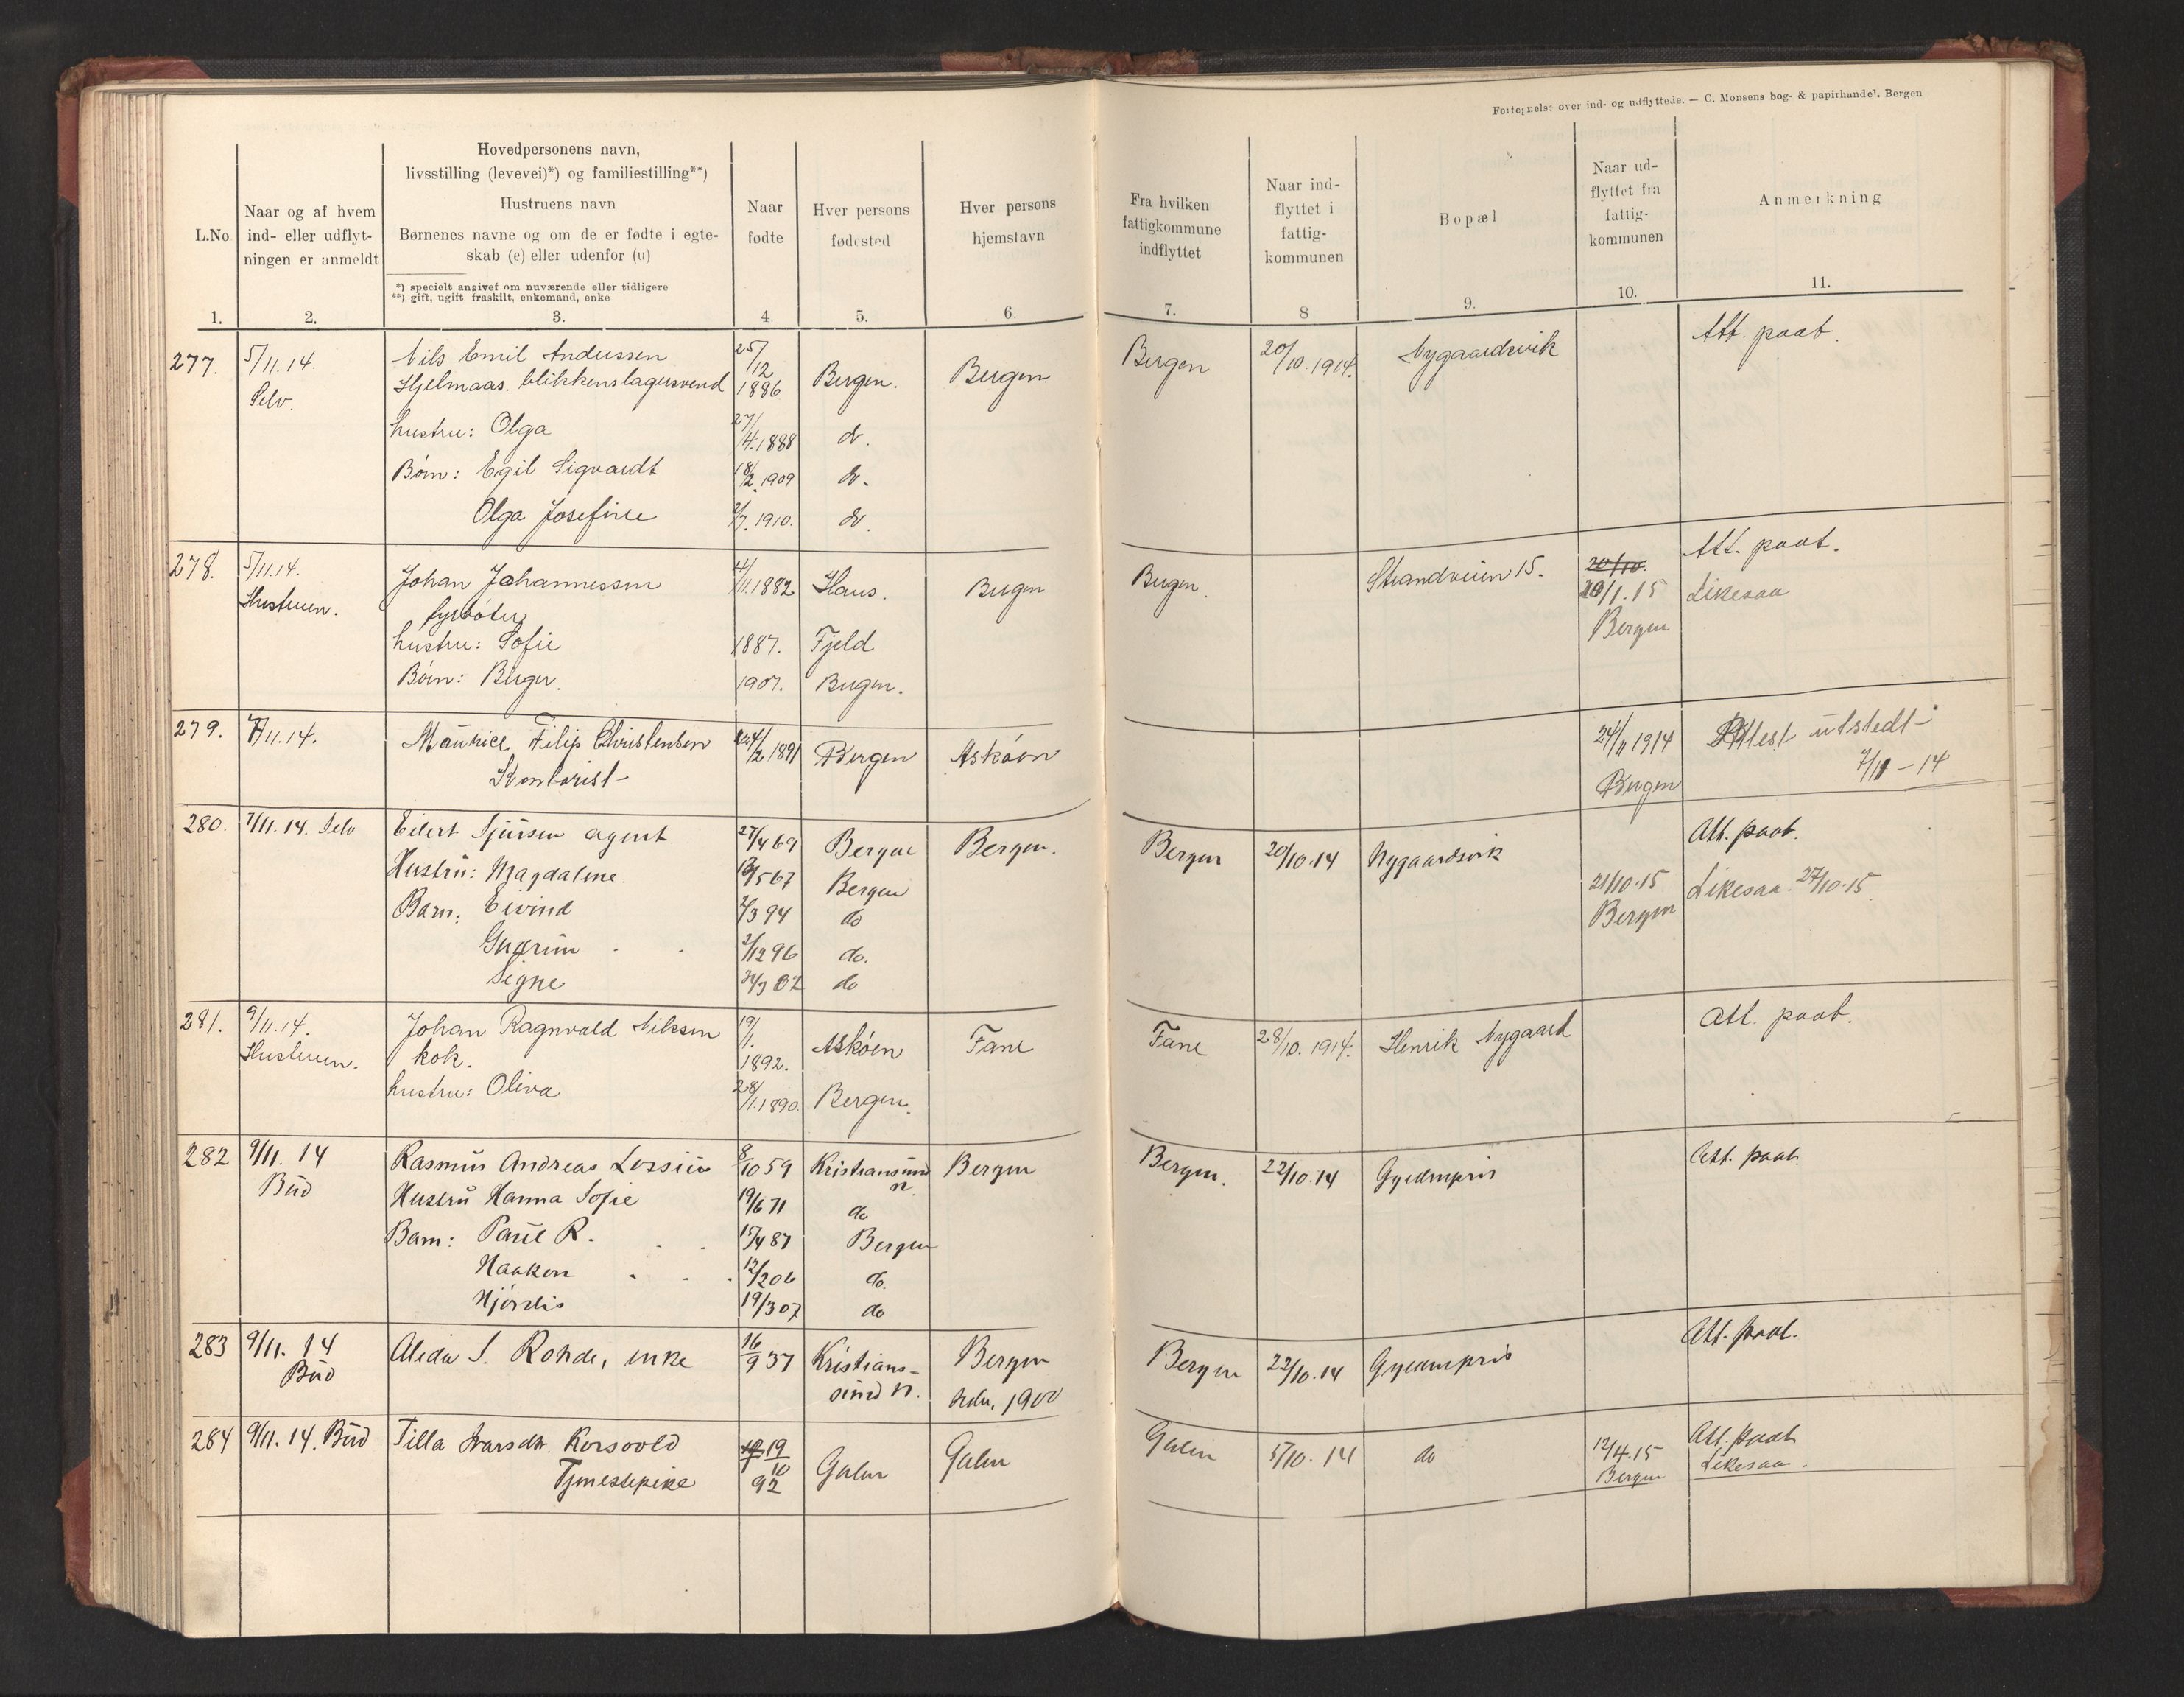 Fortegnelse over ind- og udflyttede. — C. Monsens bog- & papirhandel. Bergen
L.No
Naar og af hvem
ind- eller udflyt-
ningen er anmeldt
Hovedpersonens navn,
livsstilling (levevei)*) og familiestilling**)
Hustruens navn
Børnenes navne og om de er fødte i egte-
skab (e) eller udenfor (u)
*) specielt angivet om nuværende eller tidligere
**) gift, ugift fraskilt, enkemand, enke
Naar
fødte
Hver persons
fødested
Hver persons
hjemstavn
Fra hvilken
fattigkommune
indflyttet
Naar ind-
flyttet i
fattig-
kommunen
Bopæl
Naar ud-
flyttet fra
fattig-
kommunen
Anmerkning
1. 2. 3. 4. 5. 6. 7. 8 9. 10. 11.
277. 5/11.14. Nils Emil Andersen 25/12 Bergen 20/10.1914. Nygaardsvik Att. paat.
Selv. Hjelmaas. blikkenslagersvend 1886 Bergen. Bergen
hustru: Olga 27/4.1888 do.
Børn: Egil Sigvardt 18/2.1909 do.
Olga Josefine 2/7.1910. do.
278. 5/11.14. Johan Johannessen 4/11.1882 Haus. Bergen Bergen. Strandveien 15. 20/10. Att. paat.
Hustruen. fyrbøter /1.15 Likesaa
hustru: Sofie 1887. Fjeld Bergen
Børn: Birger. 1907. Bergen.
279. 7/11.14. Maurice Filip Christensen /2 1891 Bergen Askøen 24/11 1914 Attest utstedt
Kontorist Bergen 7/11-14
280. 7/11.14. Selv Eilert Sjursen agent 27/4 69 Bergen Bergen. Bergen 20/10.14 Nygaardsvik Att. paat.
Hustru: Magdalene /5 67 Bergen 21/10.15 Likesaa 27/10.15
Barn: Eivind 2/3 94 do Bergen
Gudrun 2/12 96 do.
Signe 24/3 02 do
281. 9/11.14. Johan Ragnvald Nilssen 19/1. Askøen Fane Fane 28/10.1914. Henrik Nygaard Att. paat.
Hustruen. kok. 1892.
hustru: Oliva 28/1.1890. Bergen.
282 9/11.14 Rasmus Andreas Lossius 8/10 59 Kristiansund Bergen Bergen. 22/10.14 Gyldenpris Att. paat.
Bud n.
Hustru Hanna Sofie 19/6 71 do
Barn: Paul R. /4 87 Bergen
Haakon 12/2 06 do.
Hjørdis 19/3 07 do
283 9/11.14 Alida S. Rohde, enke 16/9 37 Kristians- Bergen Bergen 22/10.14 Gyldenpris Att. paat.
Bud sund n. 1900
284 9/11.14. Bud Tilla Ivarsdtr. Korsvold 19/10 Gulen Gulen Gulen 5/10.14 do 12/4.15 Att. paat
Tjenestepike 92 Bergen Likesaa.